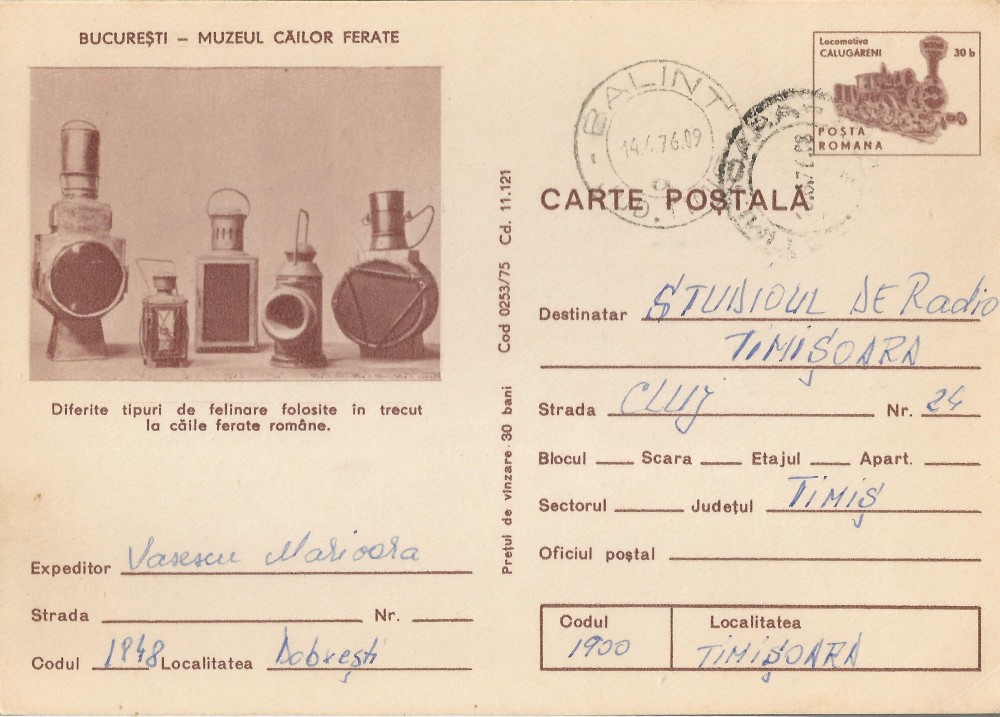 BUCUREȘTI – MUZEUL CĂILOR FERATE
Diferite tipuri de felinare folosite în trecut
la căile ferate române.
Expeditor Vasescu Marioara
Strada Nr.
Codul 1848 Localitatea Dobrești
Prețul de vînzare 30 bani Cod 0253/75 Cd. 11.121
Locomotiva
CALUGĂRENI 30 b
POȘTA
ROMANA
BALINT
14.4.76.09
CARTE POȘTALĂ
Destinatar STUDIOUL DE Radio
TIMIȘOARA
Strada CLUJ Nr. 24
Blocul Scara Etajul Apart.
Sectorul Județul TIMIȘ
Oficiul poștal
Codul Localitatea
1900 TIMIȘOARA